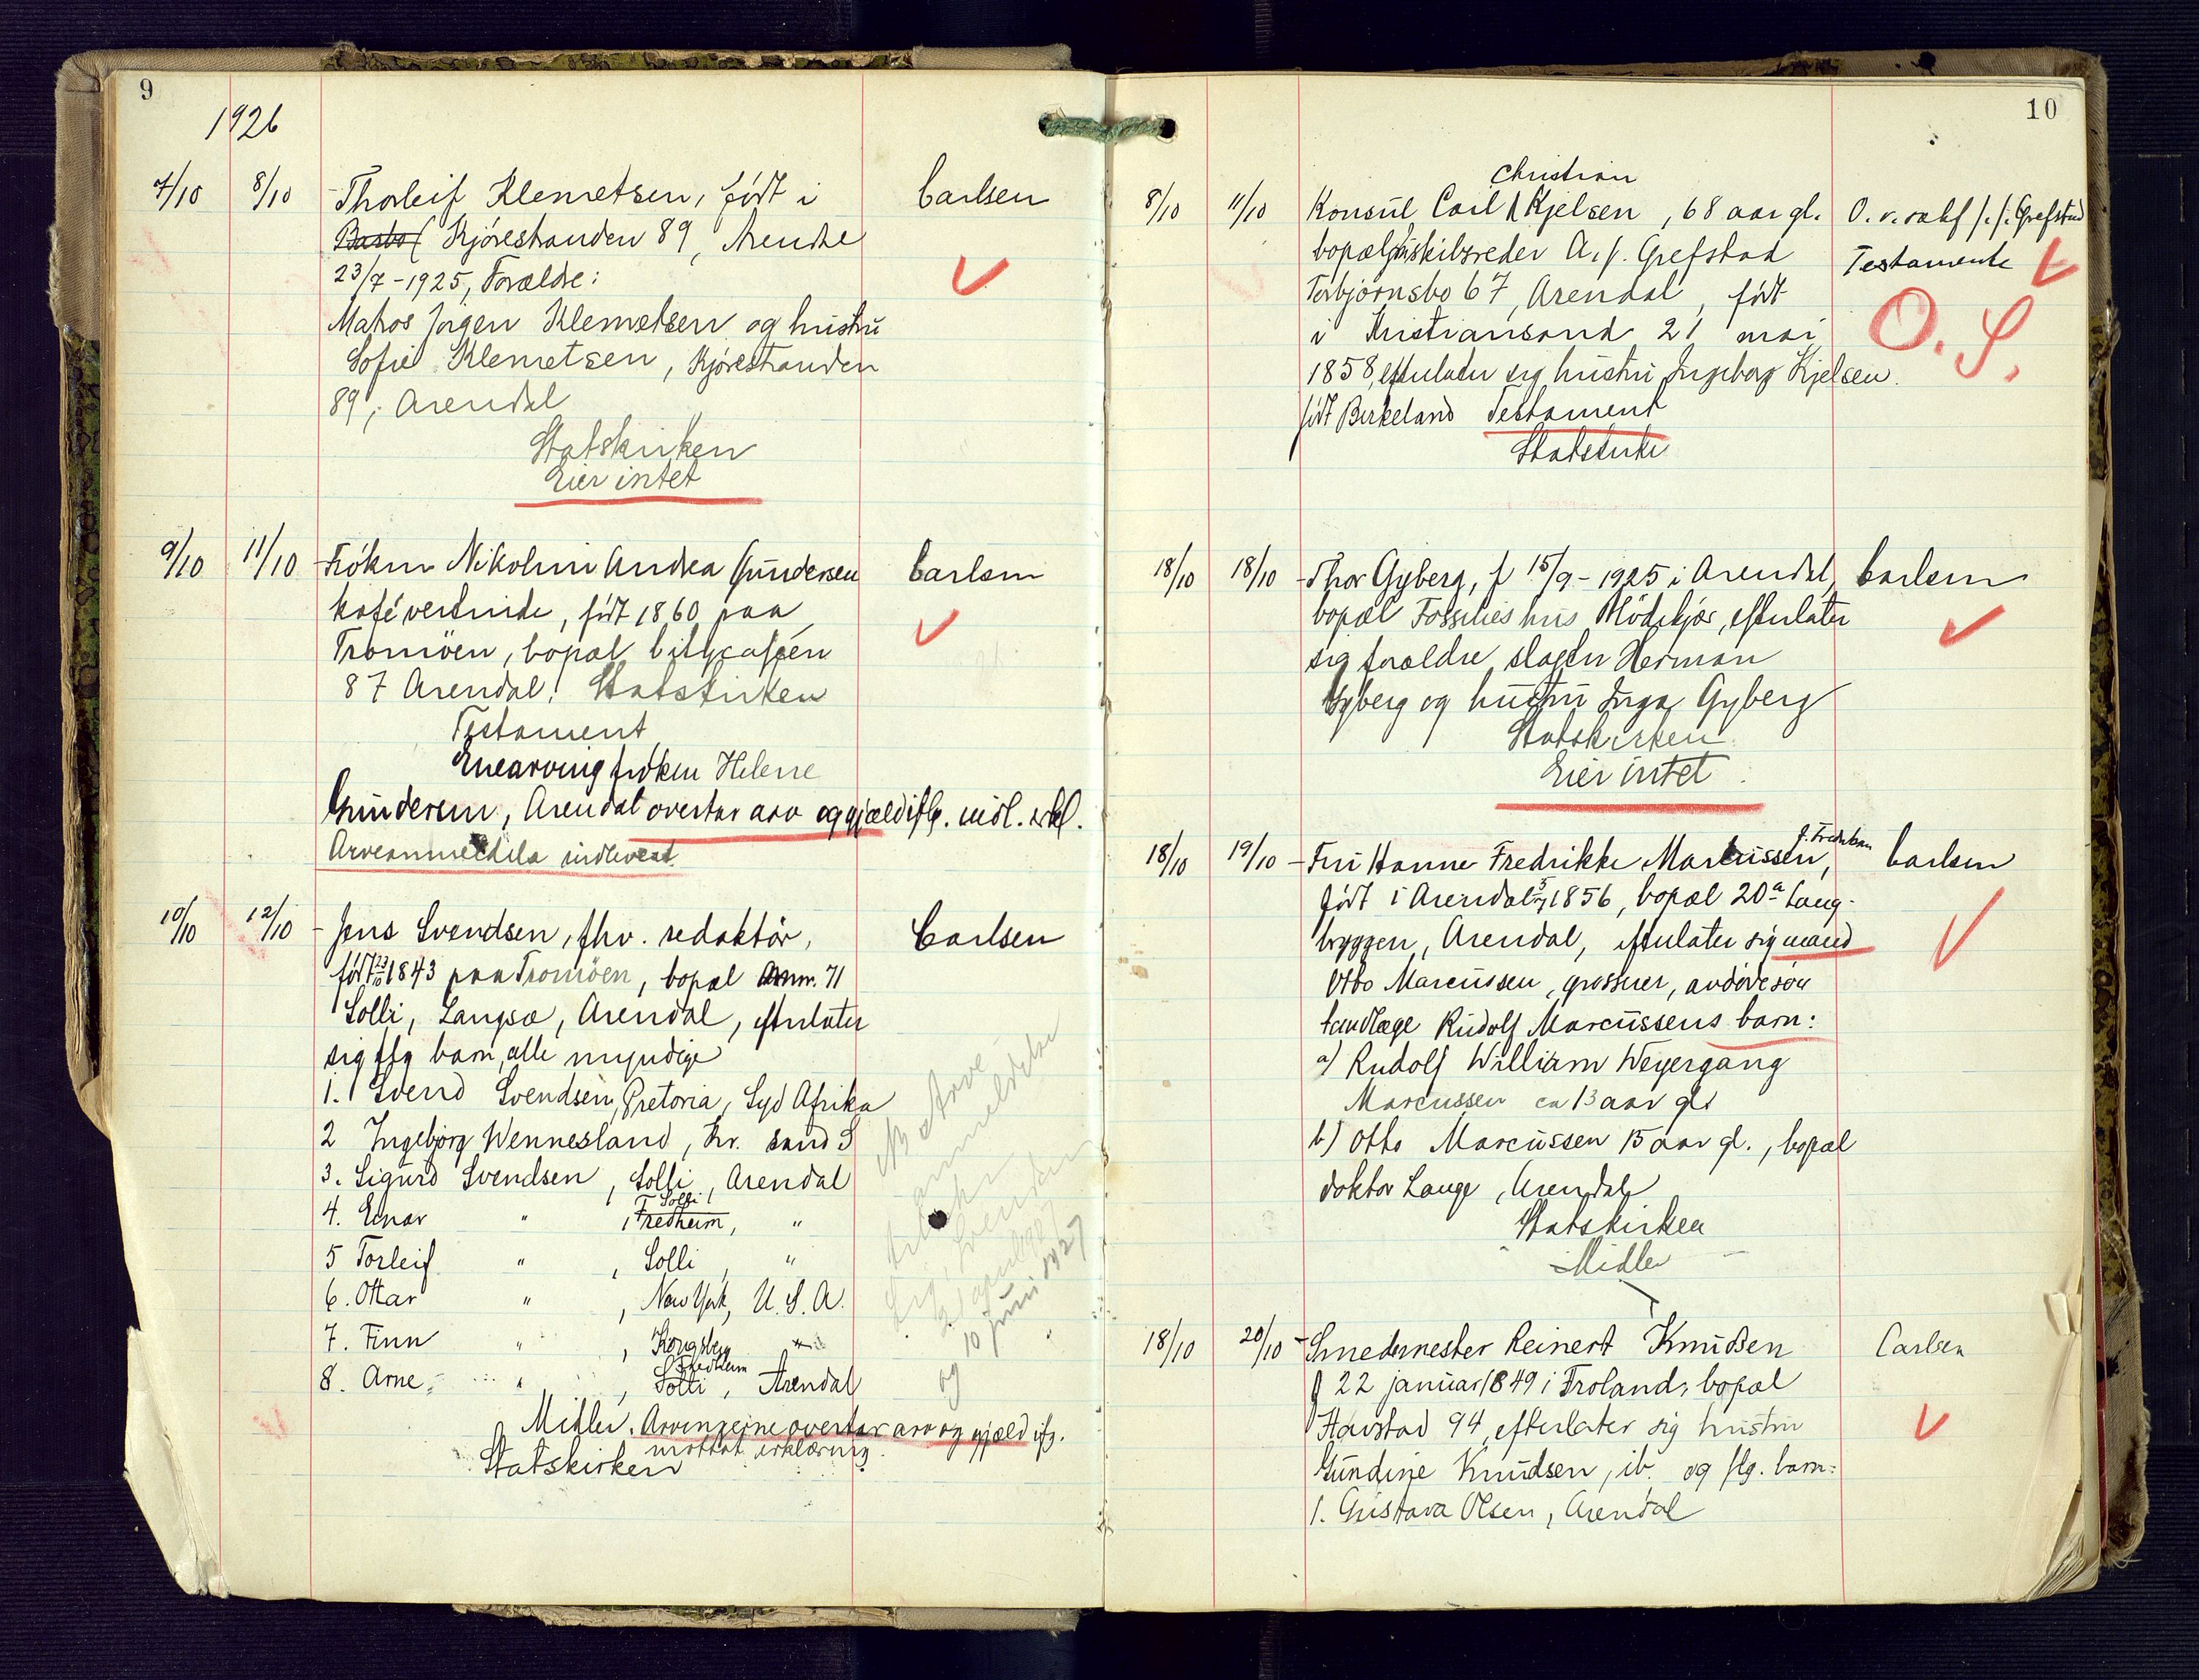 9
1926
7/10 8/10 Thorleif Klemetsen, født i Carlsen
Barbo Kjørestranden 89, Arendal
23/7-1925, Forældre:
Matros Jørgen Klemetsen og hustru
Sofie Klemetsen, Kjørestranden
89, Arendal
Statskirken
Eier intet
9/10 11/10 Frøken Nikoline Andrea Gundersen Carlsen
kafévertinde, født 1860 paa
Tromöen, bopæl Citycaféen
87 Arendal. Statskirken
Testament
Enearving frøken Helene
Gundersen, Arendal overtar arv og gjæld iflg. indl. erkl.
Arveanmeldelse indlevert
10/10 12/10 Jens Svendsen, fhv. redaktör, Carlsen
født 1843 paa Tromöen, bopæl nr. 71
Solli, Langsæ, Arendal, efterlater
sig flg barn, alle myndige
1. Svend Svendsen, Pretoria, Syd Afrika
2 Ingebjørg Wennesland, Kr. sand S
3. Sigurd Svendsen, Solli, Arendal
4. Einar " , Fredheim, Solli "
5 Torleif " , Solli, "
6. Ottar " , New York, U.S.A.
7. Finn " , Kongsberg
8. Arne " , Solli, Fredheim Arendal
Arve-
anmeldelse
10 juni 1927
og
Midler. Arvingerne overtar arv og gjæld ifg.
mottat erklæring.
Statskirken
10
8/10 11/10 Konsul Carl Christian Kjelsen, 68 aar gl. O. r. sakf. Grefstad
bopæl skibsreder A. Grefstad Testamente
Torbjørnsbo 67, Arendal, født
i Kristiansand 21 mai O. S.
1858, efterlater sig hustru Ingeborg Kjelsen.
født Birkeland Testament
Statskirke
18/10 18/10 Thor Gyberg, f 15/9-1925 i Arendal, Carlsen
bopæl Fossilies hus Mödekjær, efterlater
sig forældre slagter Herman
Gyberg og hustru Inga Gyberg
Statskirken
Eier intet.
18/10 19/10 Fru Hanne Fredrikke Marcussen, Carlsen
født i Arendal 1856, bopæl 20a Lang-
bryggen, Arendal, efterlater sig mand
Otto Marcussen, grosserer, avdøde søn
tandlæge Rudolf Marcussens barn:
a) Rudolf William Weyergang
Marcussen ca 13 aar gl.
b) Otto Marcussen 15 aar gl., bopæl
doktor Lange, Arendal
Statskirken
Midler
18/10 20/10 Smedemester Reinert Knudsen Carlsen
f 22 januar 1849 i Froland, bopæl
Havstad 94, efterlater sig hustru
Gundine Knudsen, ib. og flg. barn:
1. Gustava Olsen, Arendal